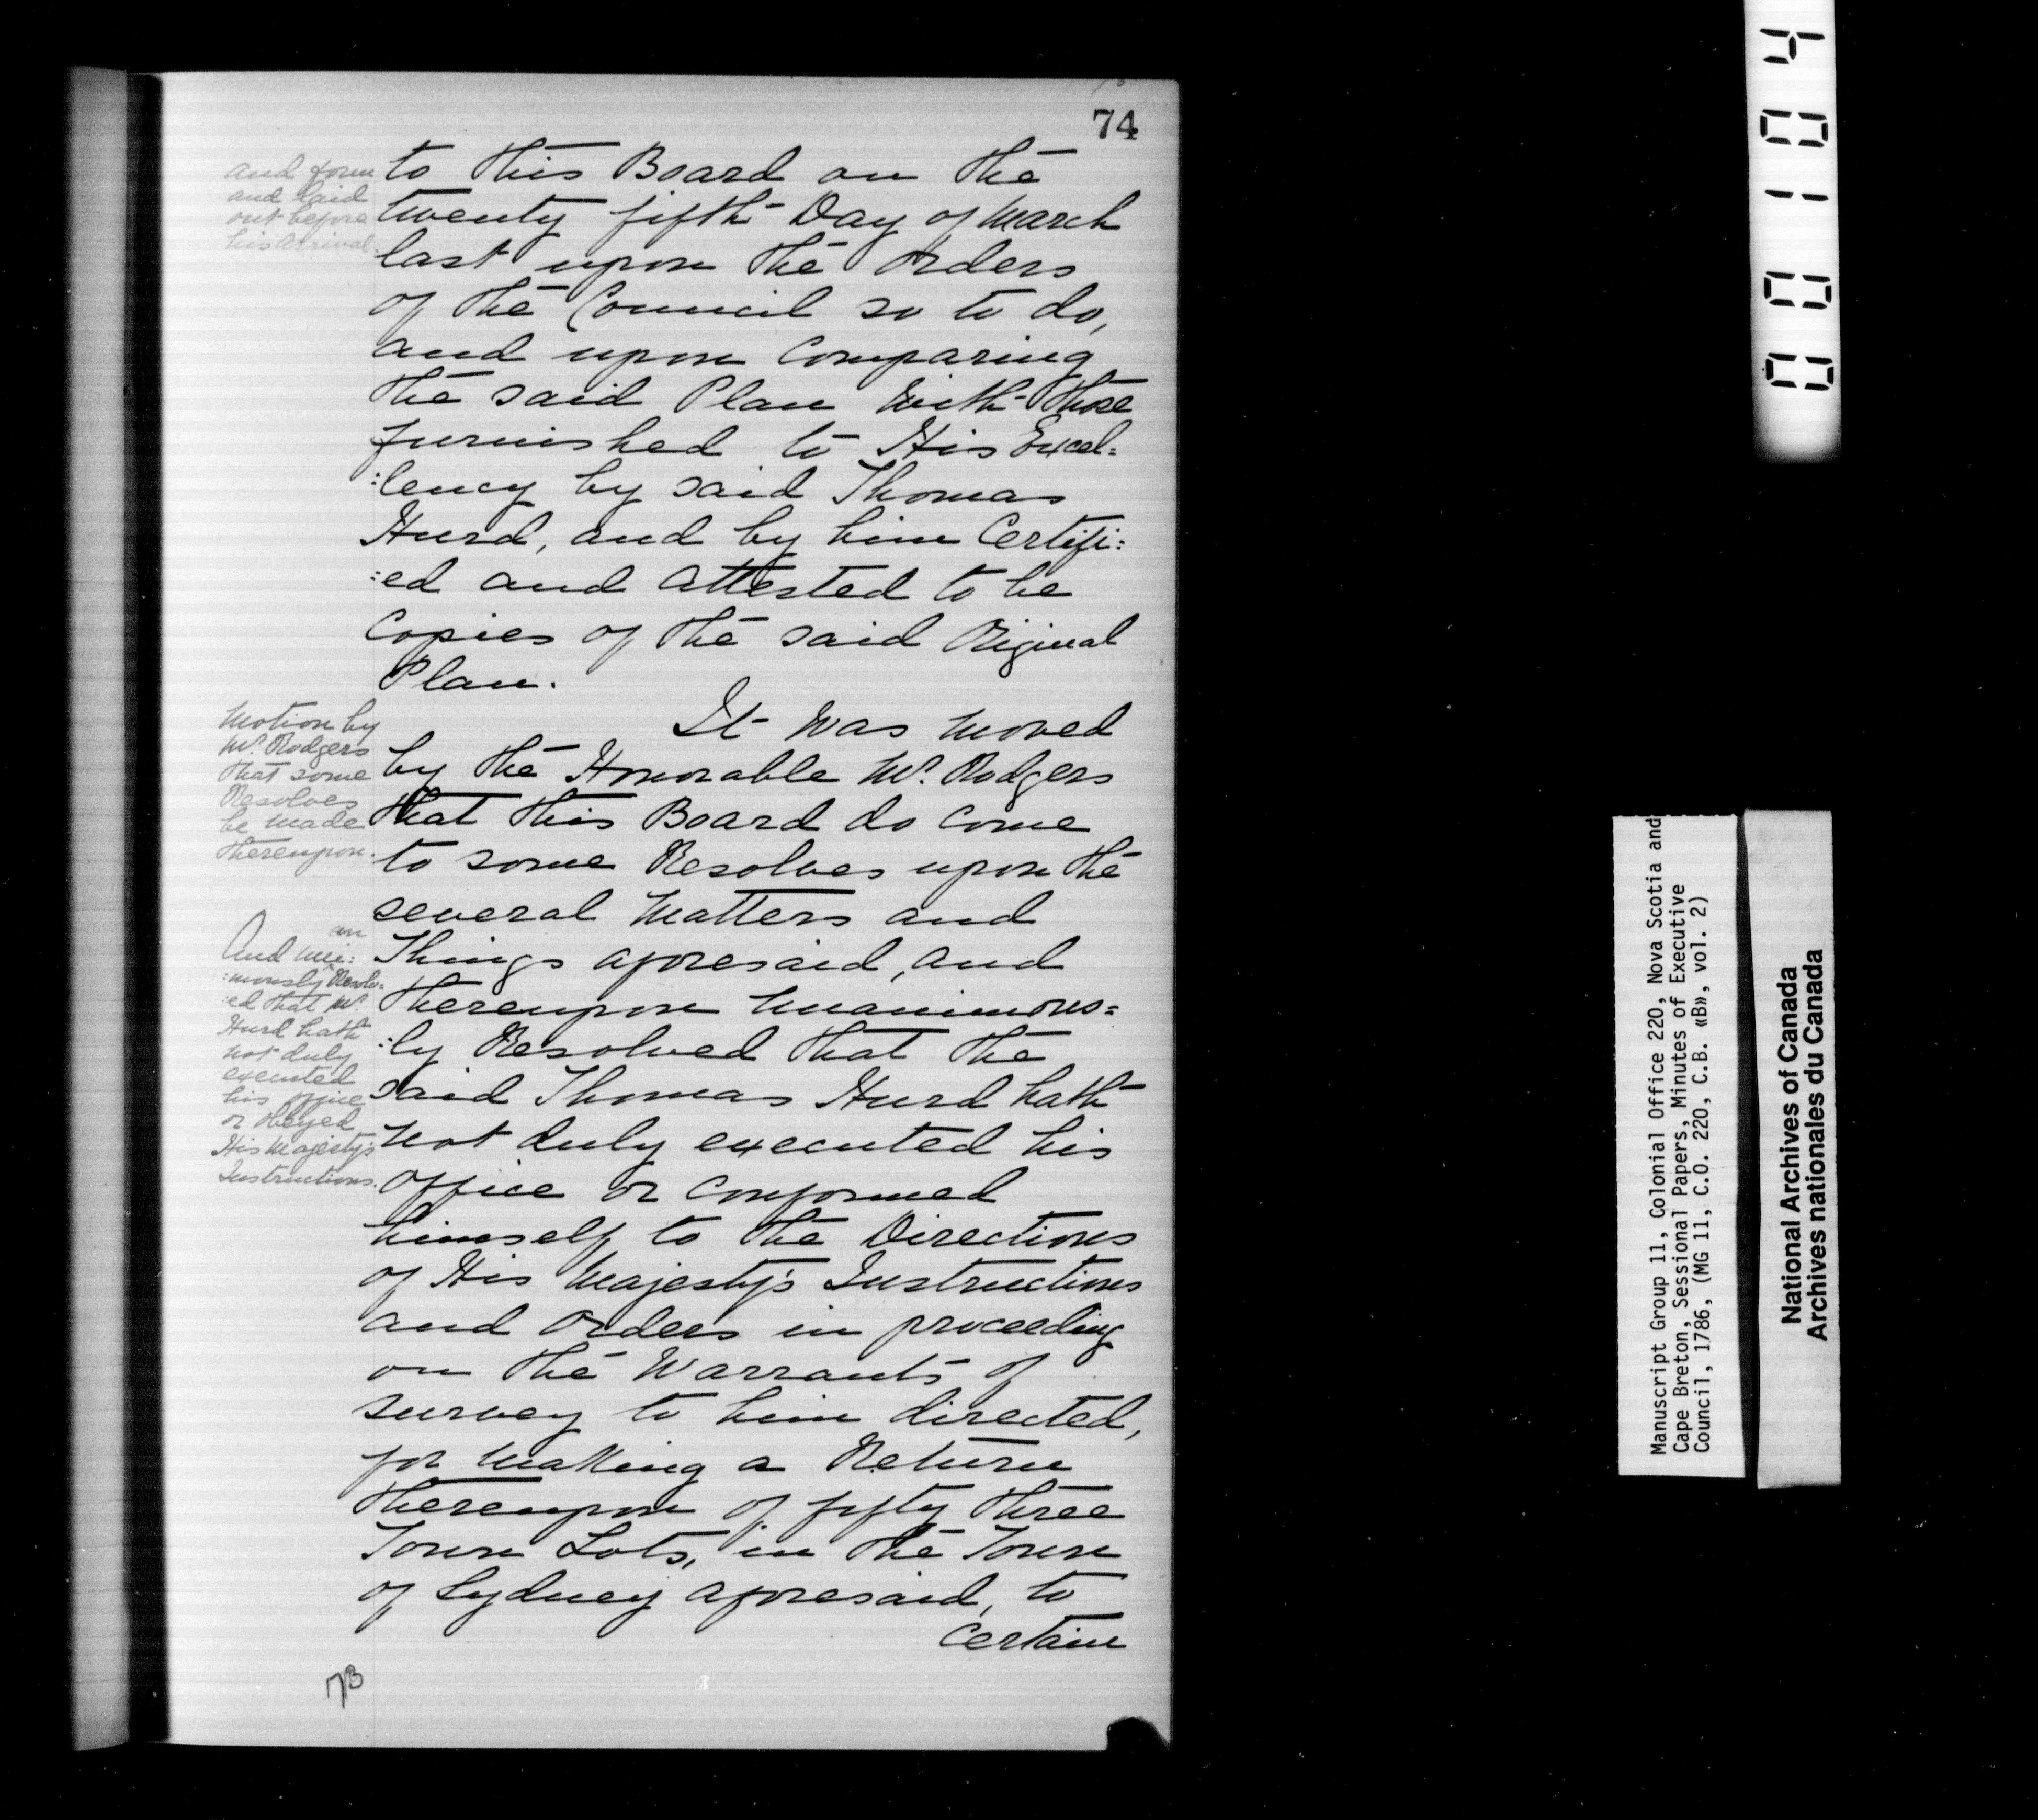 74
and town
and laid
out before
his arrival.
to this Board on the
twenty fifth Day of March
last upon the Orders
of the Council so to do,
and upon Comparing
the said Plan with those
furnished to His Excel=
:lency by said Thomas
Hurd, and by him Certifi:
:ed and attested to be
Copies of the said Original
Plan.
Motion by
Mr. Rodgers
that some
Resolves
be made
thereupon.
It was moved
by the Honorable Mr. Rodgers
that this Board do come
to some Resolves upon the
several Matters and
Things aforesaid, and
thereupon Unanimous=
:ly Resolved that the
said Thomas Hurd hath
not duly executed his
Office or conformed
himself to the Directions
of His Majesty's Instructions
and Orders in proceeding
on the Warrants of
survey to him directed,
for making a Return
thereupon of fifty three
Town Lots, in the Town
of Sydney aforesaid, to
certain
an
And uni:
:mously Resolv=
:ed that Mr.
Hurd hath
not duly
executed
his office
or obeyed
His Majesty's
Instructions.
73
0 0 1 0 4
Manuscript Group 11, Colonial Office 220, Nova Scotia and
Cape Breton, Sessional Papers, Minutes of Executive
Council, 1786, (MG 11, C.O. 220, C.B. «B», vol. 2)
National Archives of Canada
Archives nationales du Canada